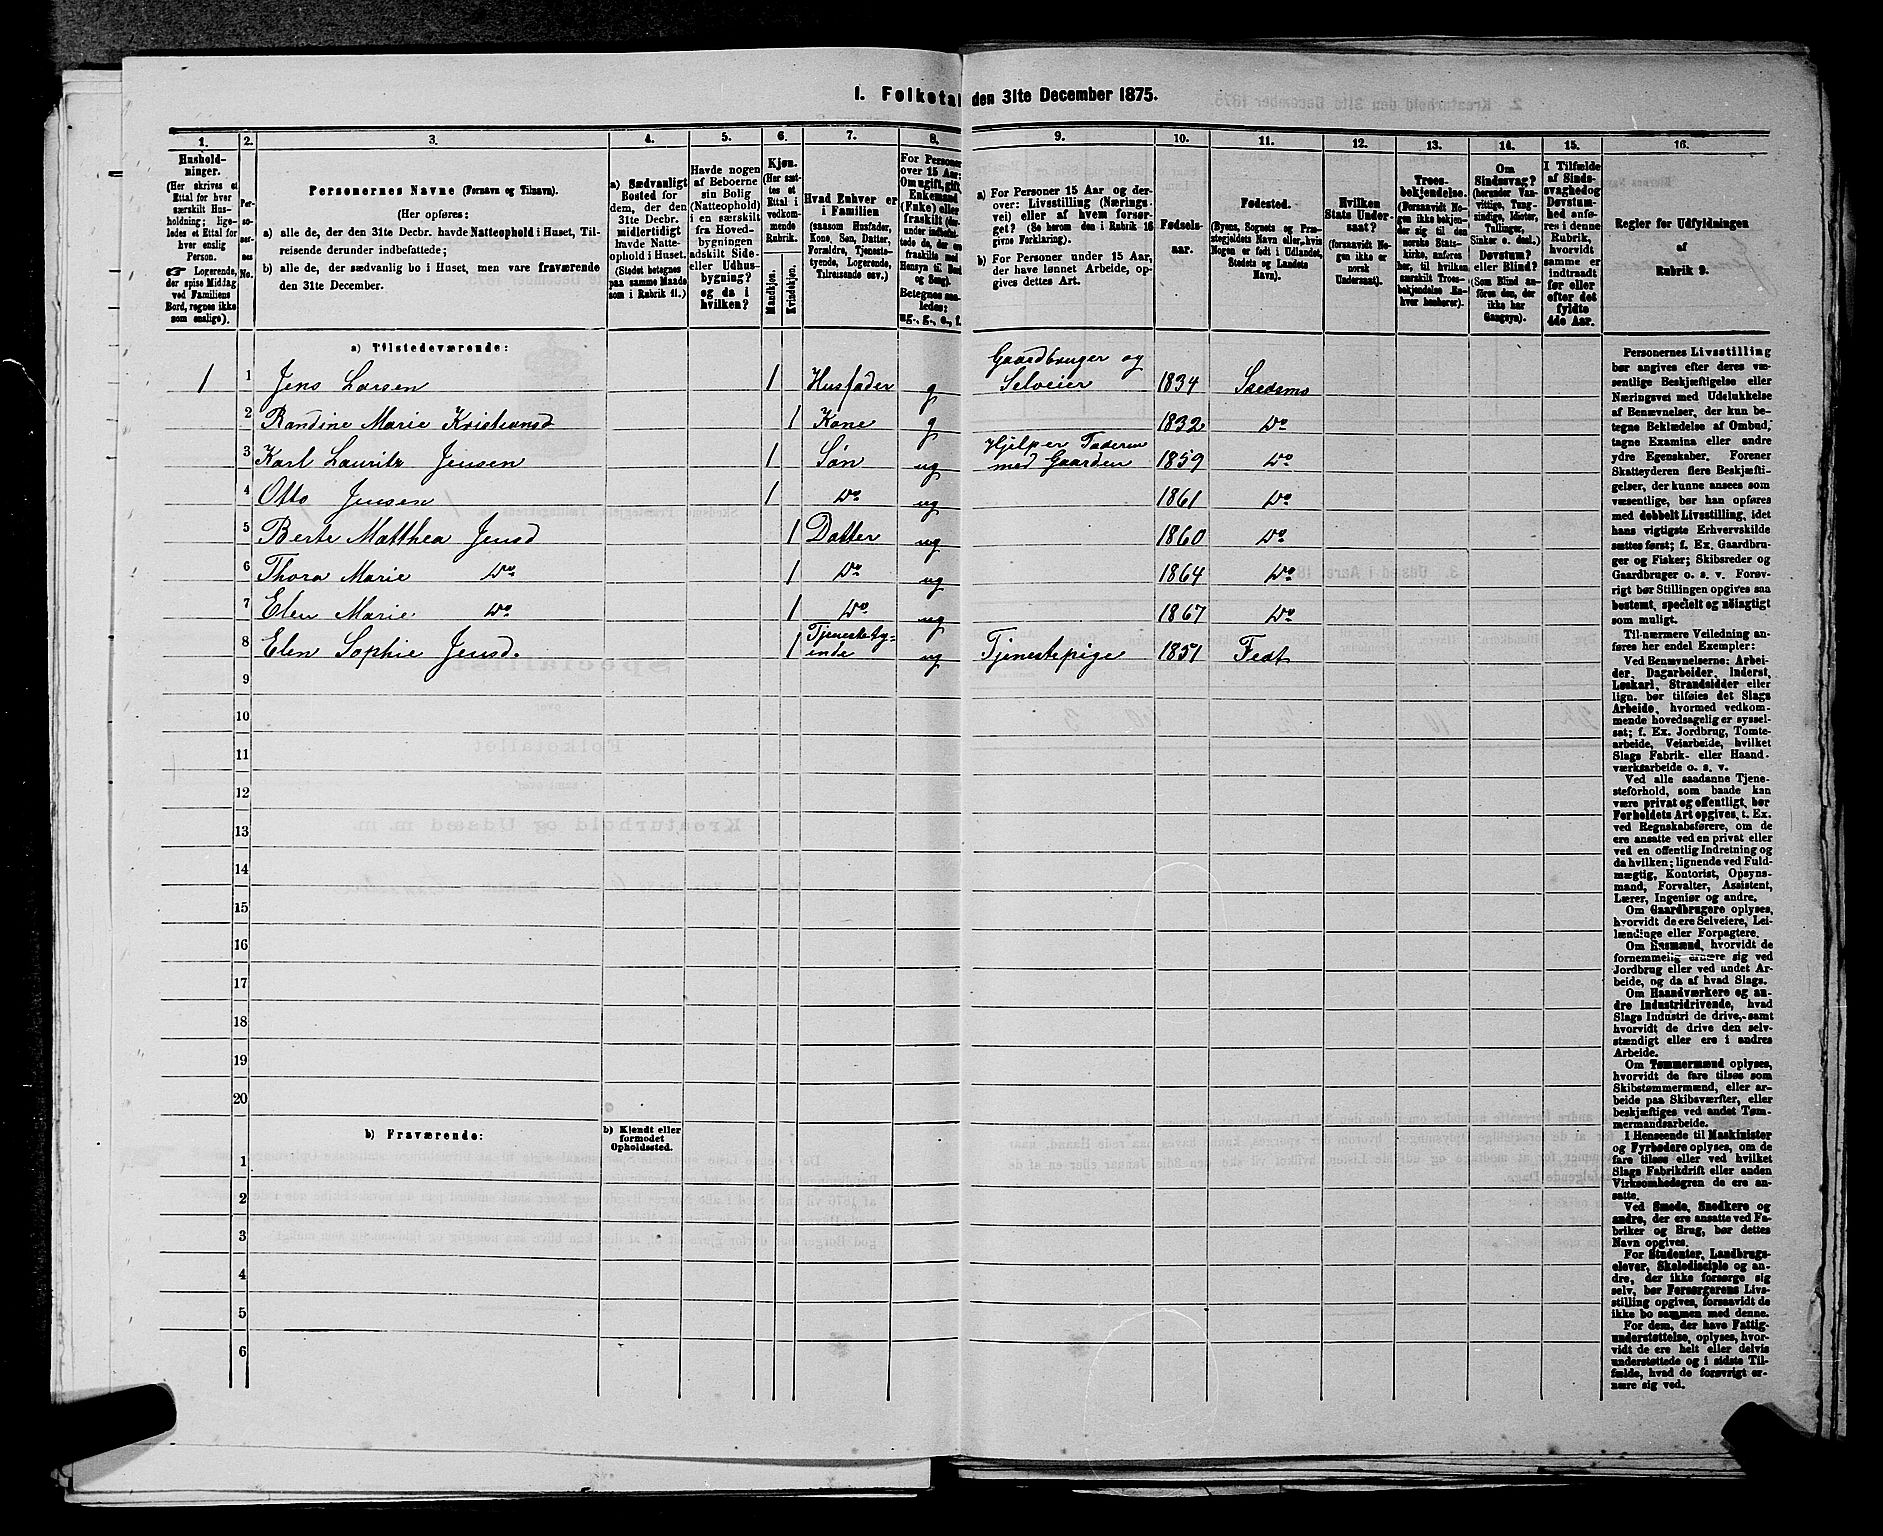 1. Folketal den 31te December 1875.
1.
Hushold-
ninger.
(Her skrives et
Ettal for hver
særskilt Hus-
holdning; lige-
ledes et Ettal for
hver enslig
Person.
Logerende,
der spise Middag
ved Familiens
Bord, regnes ikke
som enslige).
2.
Per-
soner-
nes
No.
3.
Personernes Navne (Fornavn og Tilnavn).
(Her opføres:
a) alle de, der den 31te Decbr. havde Natteophold i Huset, Til-
reisende derunder indbefattede;
b) alle de, der sædvanlig bo i Huset, men vare fraværende
den 31te December.
4.
a) Sædvanligt
Bosted for
dem, der den
31te Decbr.
midlertidigt
havde Natte-
ophold i Huset.
(Stedet betegnes
paa samme Maade
som i Rubrik 11.)
5.
Havde nogen
af Beboerne
sin Bolig
(Natteophold)
i en særskilt
fra Hoved-
bygningen
adskilt Side-
eller Udhus-
bygning?
og da i
hvilken?
6.
Kjøn.
(Her sæt-
tes et
Ettal i
vedkom-
mende
Rubrik.
Mandkjøn.
Kvindekjøn.
7.
Hvad Enhver er
i Familien
(saasom Husfader,
Kone, Søn, Datter,
Forældre, Tjeneste-
tyende, Logerende,
Tilreisende osv.)
8.
For Personer
over 15 Aar:
Om ugift, gift,
Enkemand
(Enke) eller
fraskilt
Betegnes saa-
ledes:
ug., g., e., f.
9.
a) For Personer 15 Aar og der-
over: Livsstilling (Nærings-
vei) eller af hvem forsør-
get? (Se herom den i Rubrik 16
givne Forklaring).
b) For Personer under 15 Aar,
der have lønnet Arbeide, op-
gives dettes Art.
10.
Fødsels-
aar.
11.
Fødested.
(Byens, Sognets og Præ-
stegjeldets Navn eller, hvis
Nogen er født i Udlandet,
Stedets og Landets
Navn).
12.
Hvilken
Stats Under-
saat?
(forsaavidt No-
gen ikke er
norsk
Undersaat).
13.
Troes-
bekjendelse.
(Forsaavidt No-
gen ikke bekjen-
der sig til den
norske Stats-
kirke, anføres
her, til hvilken
særskilt Troes-
bekjendelse En-
hver henhører).
14.
Om
Sindssvag?
(herunder Van-
vittige, Tung-
sindige, Idioter,
Tullinger,
Sinker o. desl.)
Døvstum?
eller Blind?
(Som Blind an-
føres den, der
ikke har
Gangsyn).
15.
I Tilfælde
af Sinds-
svaghed og
Døvstum-
hed anfø-
res i denne
Rubrik,
hvorvidt
samme er
indtraadt
før eller
efter det
fyldte
4de Aar.
16.
Regler for Udfyldningen
af
Rubrik 9.
a) Tilstedeværende:
1 1 Jens Larsen 1 Husfader g Gaardbruger og
Selveier 1834 Skedsmo
2 Randine Marie Kristiansd 1 Kone g 1832 Do
3 Karl Lauritz Jensen 1 Søn ug Hjelper Faderen
med Gaarden 1859 Do
4 Otto Jensen 1 Do ug 1861 Do
5 Berte Matthea Jensd 1 Datter ug 1860 Do
6 Thora Marie Do 1 Do ug 1864 Do
7 Elen Marie Do 1 Do ug 1867 Do
8 Elen Sophie Jensd. 1 Tjenestety-
ende ug Tjenestepige 1851 Fedt
9
10
11
12
13
14
15
16
17
18
19
20
b) Fraværende:
b) Kjendt eller
formodet
Opholdssted.
1
2
3
4
5
6
Personernes Livsstilling
bør angives efter deres væ-
sentlige Beskjæftigelse eller
Næringsvei med Udelukkelse
af Benævnelser, der kun be-
tegne Beklædelse af Ombud,
tagne Examina eller andre
ydre Egenskaber. Forener
Skatteyderen flere Beskjæfti-
gelser, der kunne ansees som
væsentlige, bør han opføres
med dobbelt Livsstilling, idet
hans vigtigste Erhvervskilde
sættes først; f. Ex. Gaardbru-
ger og Fisker; Skibsreder og
Gaardbruger o. s. v. Forøv-
rigt bør Stillingen opgives saa
bestemt, specielt og nøiagtigt
som muligt.
Til nærmere Veiledning an-
føres her endel Exempler:
Ved Benævnelserne: Arbei-
der, Dagarbeider, Inderst,
Løskarl, Strandsidder eller
lign. bør tilføies det Slags
Arbeide, hvormed vedkom-
mende hovedsagelig er syssel-
sat; f. Ex. Jordbrug, Tomte-
arbeide, Veiarbeide, hvilket
Slags Fabrik- eller Haand-
værksarbeide o. s. v.
Ved alle saadanne Tjene-
steforhold, som baade kan
være privat og offentligt, bør
Forholdets Art opgives, t. Ex.
ved Regnskabsførere, om de
ere ansatte ved en privat eller
ved en offentlig Indretning og
da hvilken; lignende ved Fuld-
mægtig, Kontorist, Opsyns-
mand, Forvalter, Assistent,
Lærer, Ingeniør og andre.
Om Gaardbrugere oplyses,
hvorvidt de ere Selveiere, Lei-
lændinge eller Forpagtere.
Om Husmænd, hvorvidt de
fornemmelig ernære sig ved
Jordbrug eller ved andet Ar-
beide, og da af hvad Slags.
Om Haandværkere og an-
dre Industridrivende, hvad
Slags Industri de drive, samt
hvorvidt de drive den selv-
stændigt eller ere i andres
Arbeide.
Om Tømmermænd oplyses,
hvorvidt de fare tilsøs som
Skibstømmermænd, eller ar-
beide paa Skibsværfter, eller
beskjæftiges ved andet Tøm-
mermandsarbeide.
I Henseende til Maskinister
og Fyrbødere oplyses, om de
fare tilsøs eller ved hvilket
Slags Fabrikdrift eller anden
Virksomhedsgren de ere an-
satte.
Ved Smede, Snedkere og
andre, der ere ansatte ved Fa-
briker og Brug, bør dettes
Navn opgives.
For Studenter, Landbrugs-
elever, Skoledisciple og an-
dre, der ikke forsørge sig
selv, bør Forsørgerens Livs-
stilling opgives, forsaavidt de
ikke bo sammen med denne.
For dem, der have Fattig-
understøttelse, oplyses, hvor-
vidt de ere helt eller delvis
understøttede og i sidste Til-
fælde, hvad de forøvrigt er-
nære sig ved.